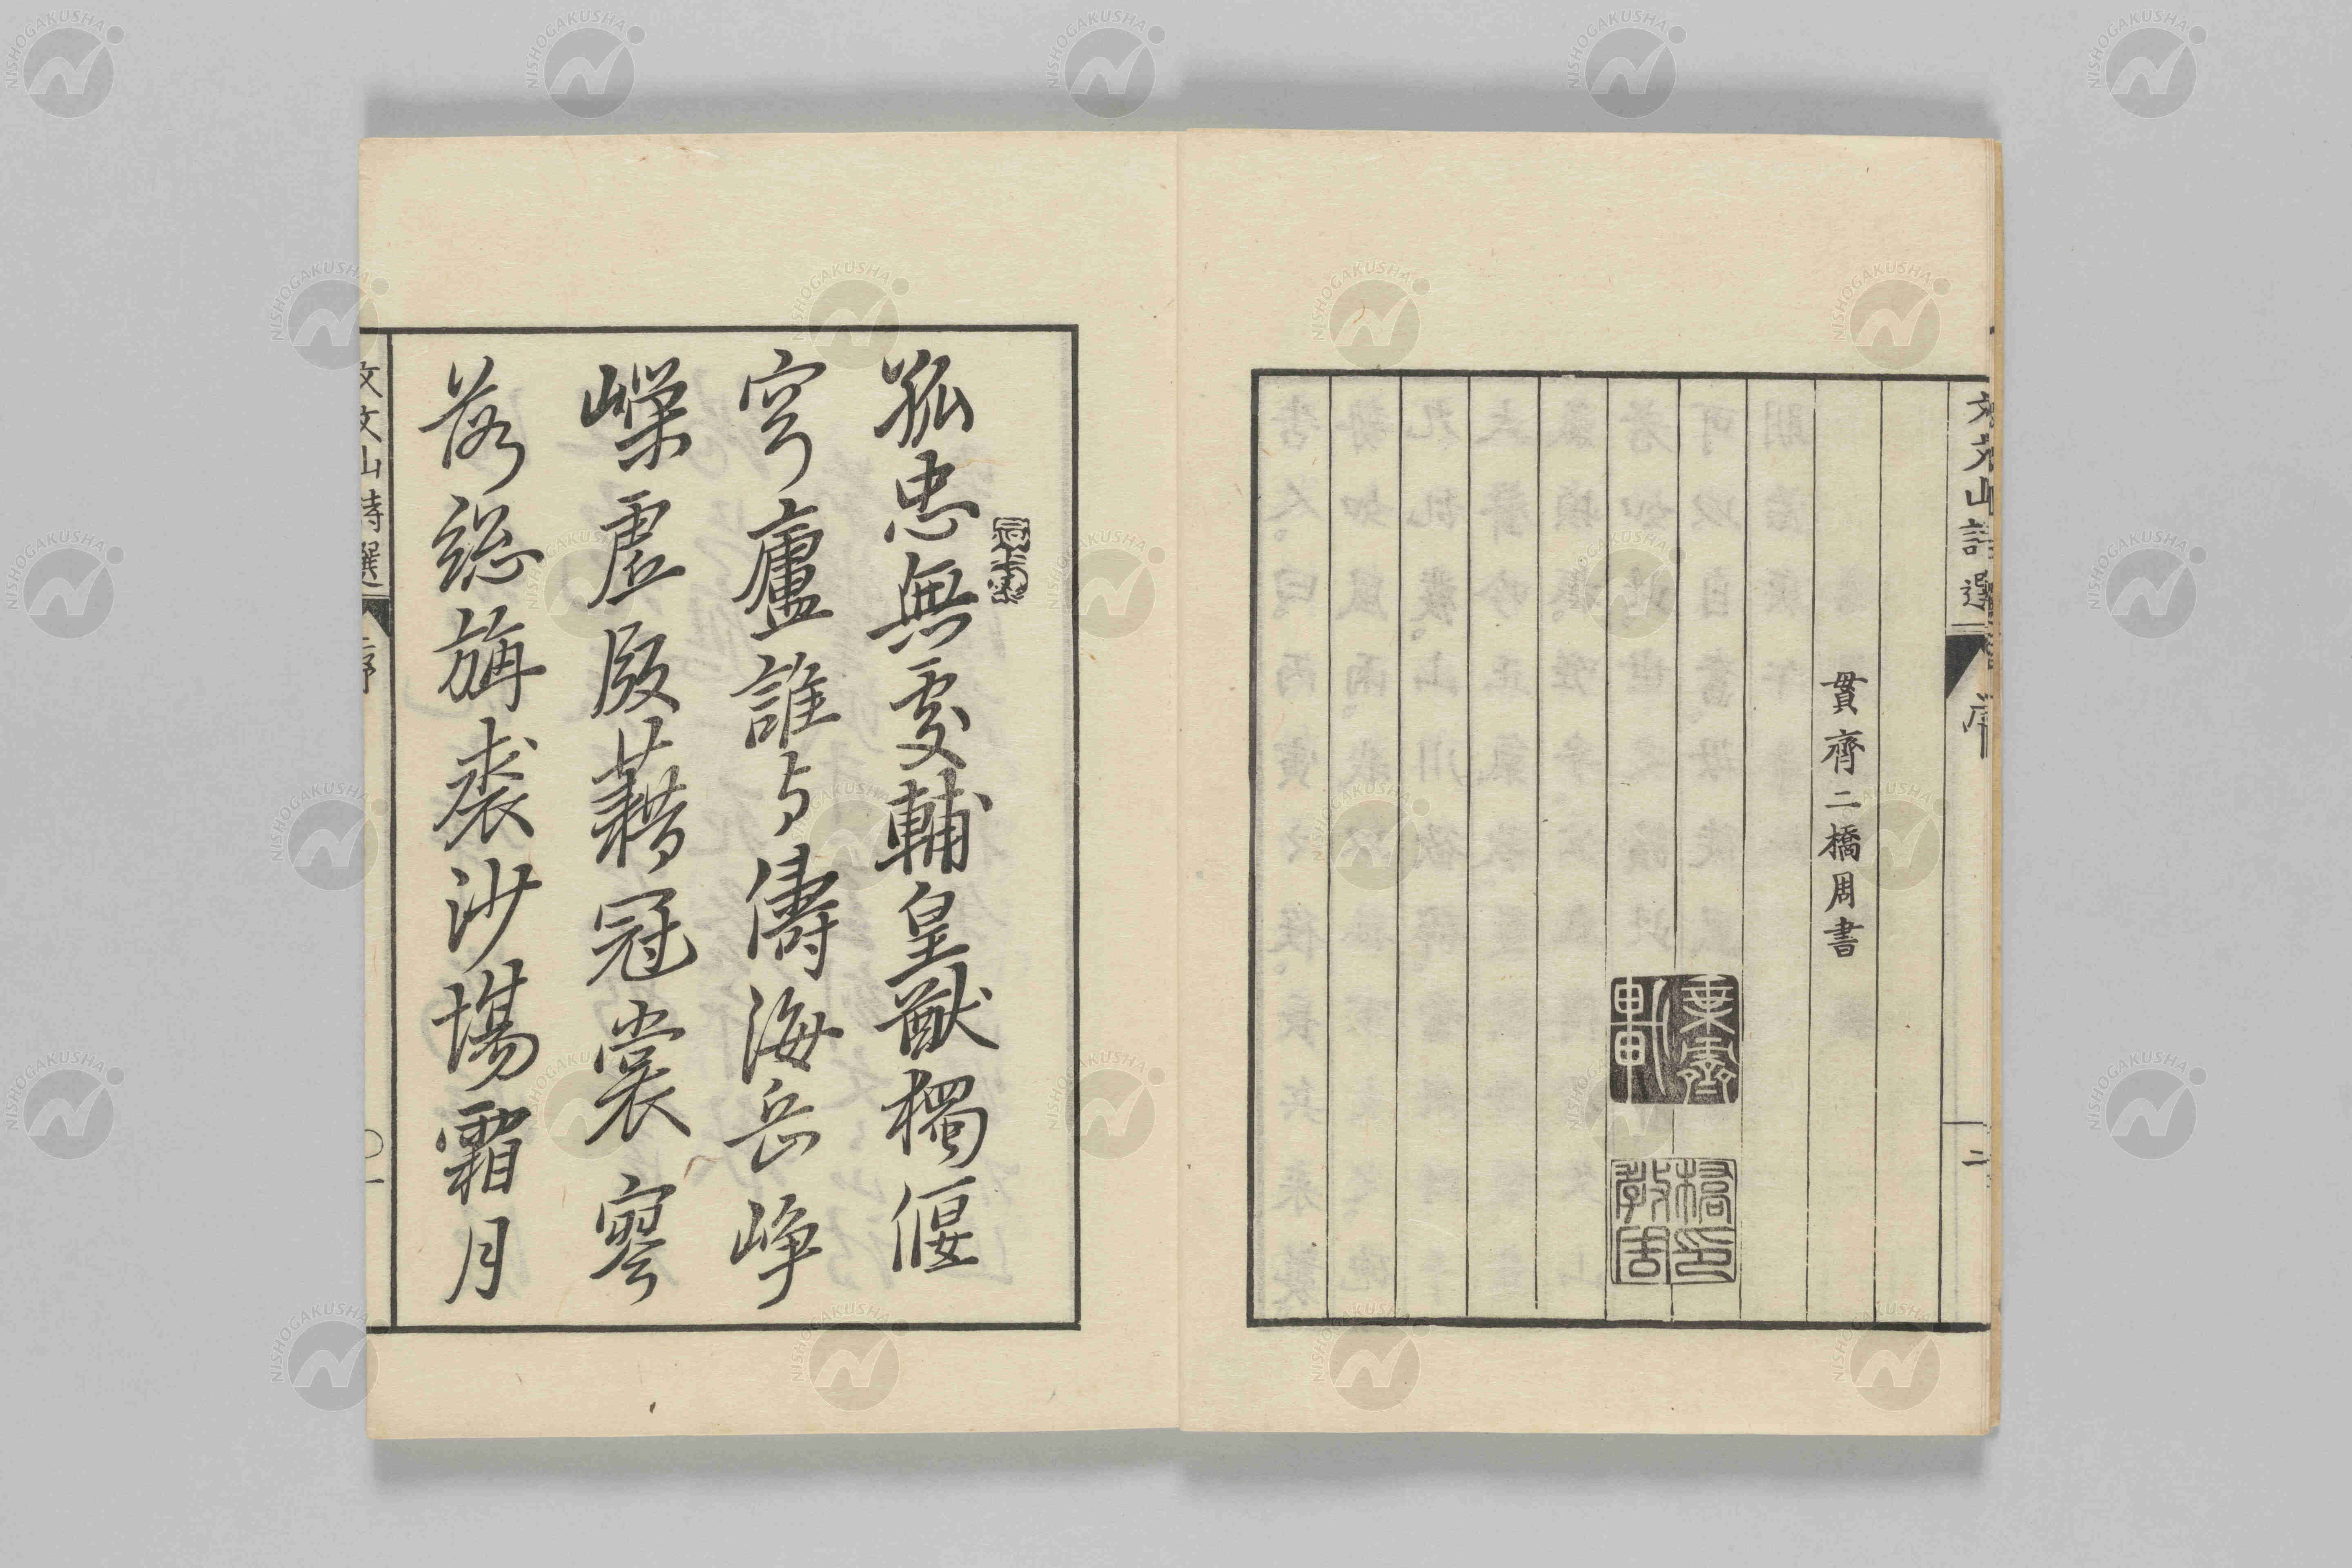 文文山詩選
序
二
貫齊二橋周書
孤忠無處輔皇猷獨偃
穹廬誰与儔海岳崢
嶸虚版藉冠裳寥
落總旃裘沙場霜月
文文山詩選
序
〇一
NISHOGAKUSHA